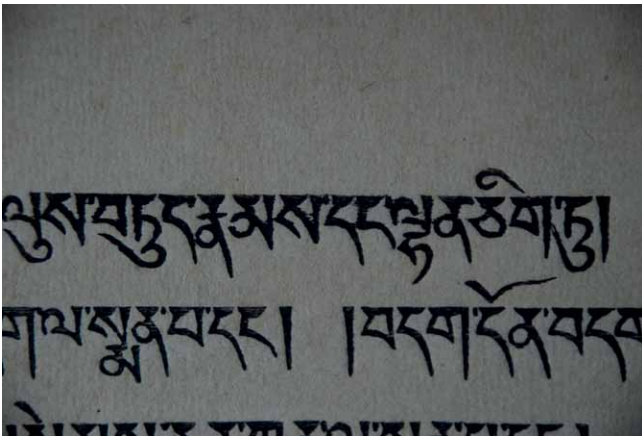 ལུས་བཏུད་རྣམས་དང་ལྷན་ཅིག་ཏུ།
གལ་སྨན་པ་དང་། །བདག་དོན་བདག